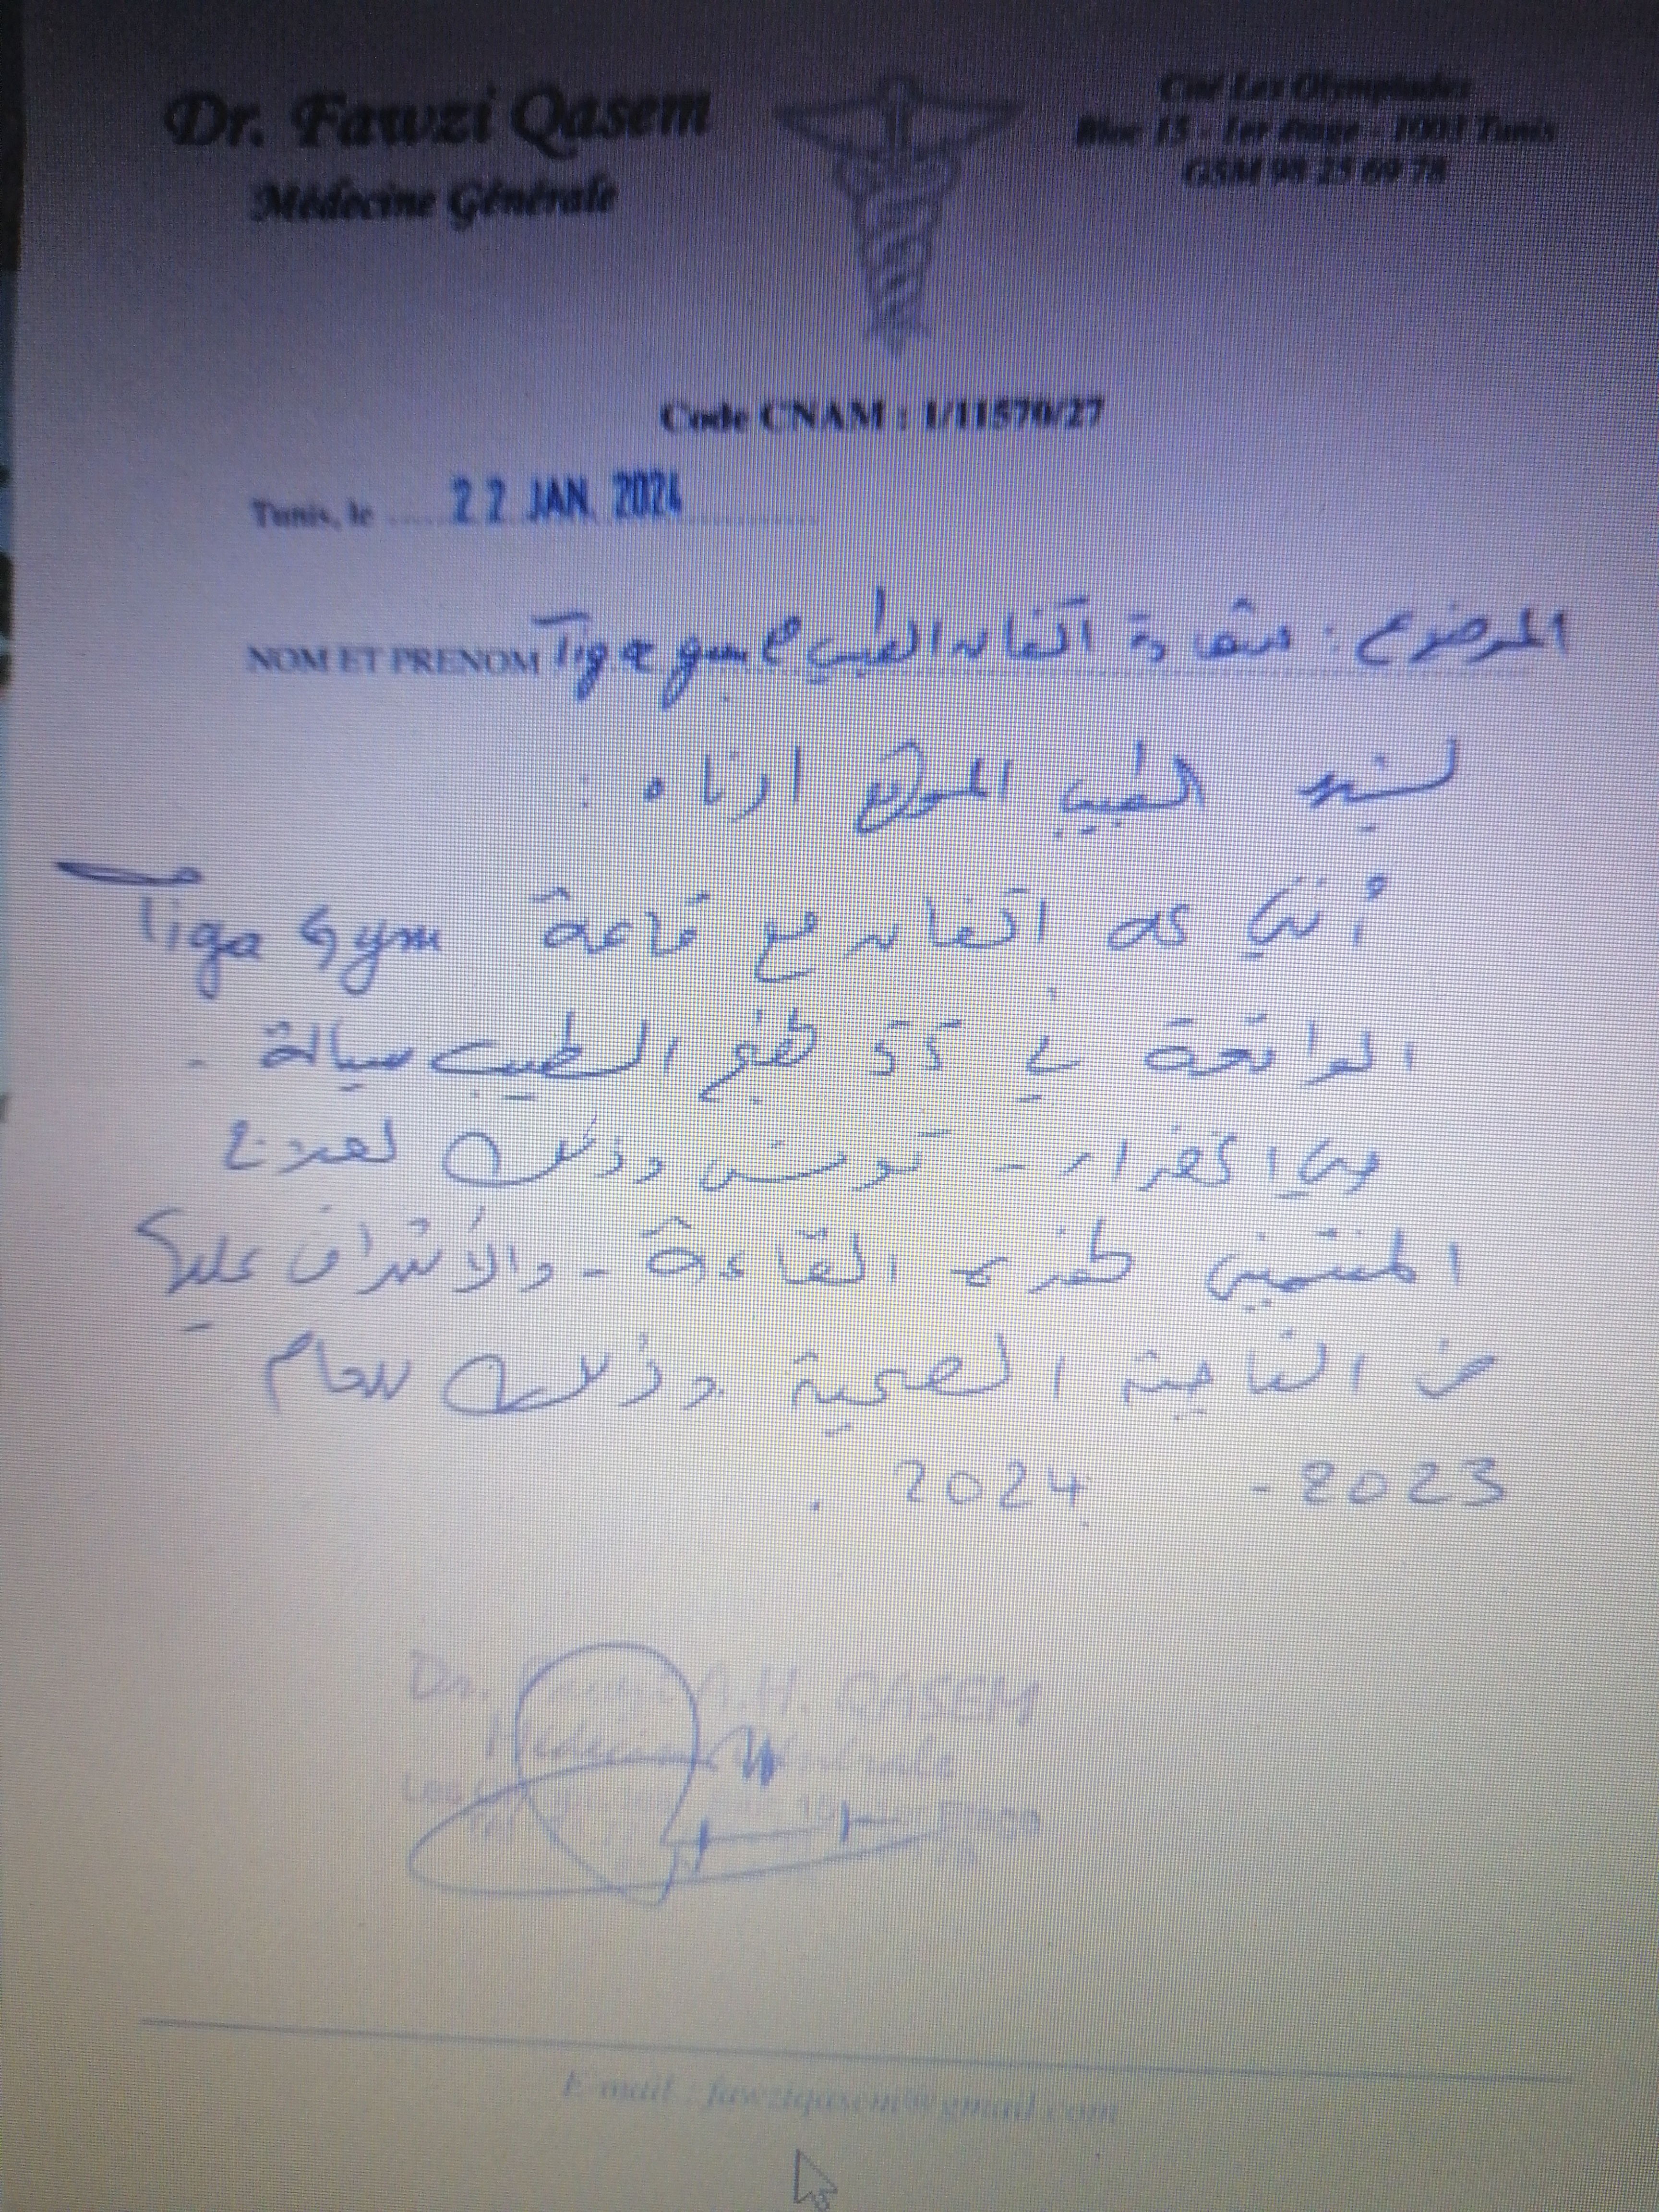 Dr. Fawzi Qasem
Médecine Générale
Cité Les Olympiades
Bloc 15 - 1er étage - 1003 Tunis
GSM 98 25 69 78
Code CNAM : 1/11570/27
Tunis, le 22 JAN. 2024
NOM ET PRENOM
الموضوع : شهادة اتفاق الطبيب مع Tiga gym
يشهد الطبيب الموقع ادناه :
أنني على اتفاق مع قاعة Tiga Gym
الواقعة في 55 نهج الطيب سيالة -
حي الخضراء - تونس وذلك لعلاج
المنتمين لهذه القاعة - والأشراف عليهم
من الناحية الصحية وذلك للعام
2023 - 2024 .
Dr. A.H. QASEM
E-mail : fawziqasem@gmail.com